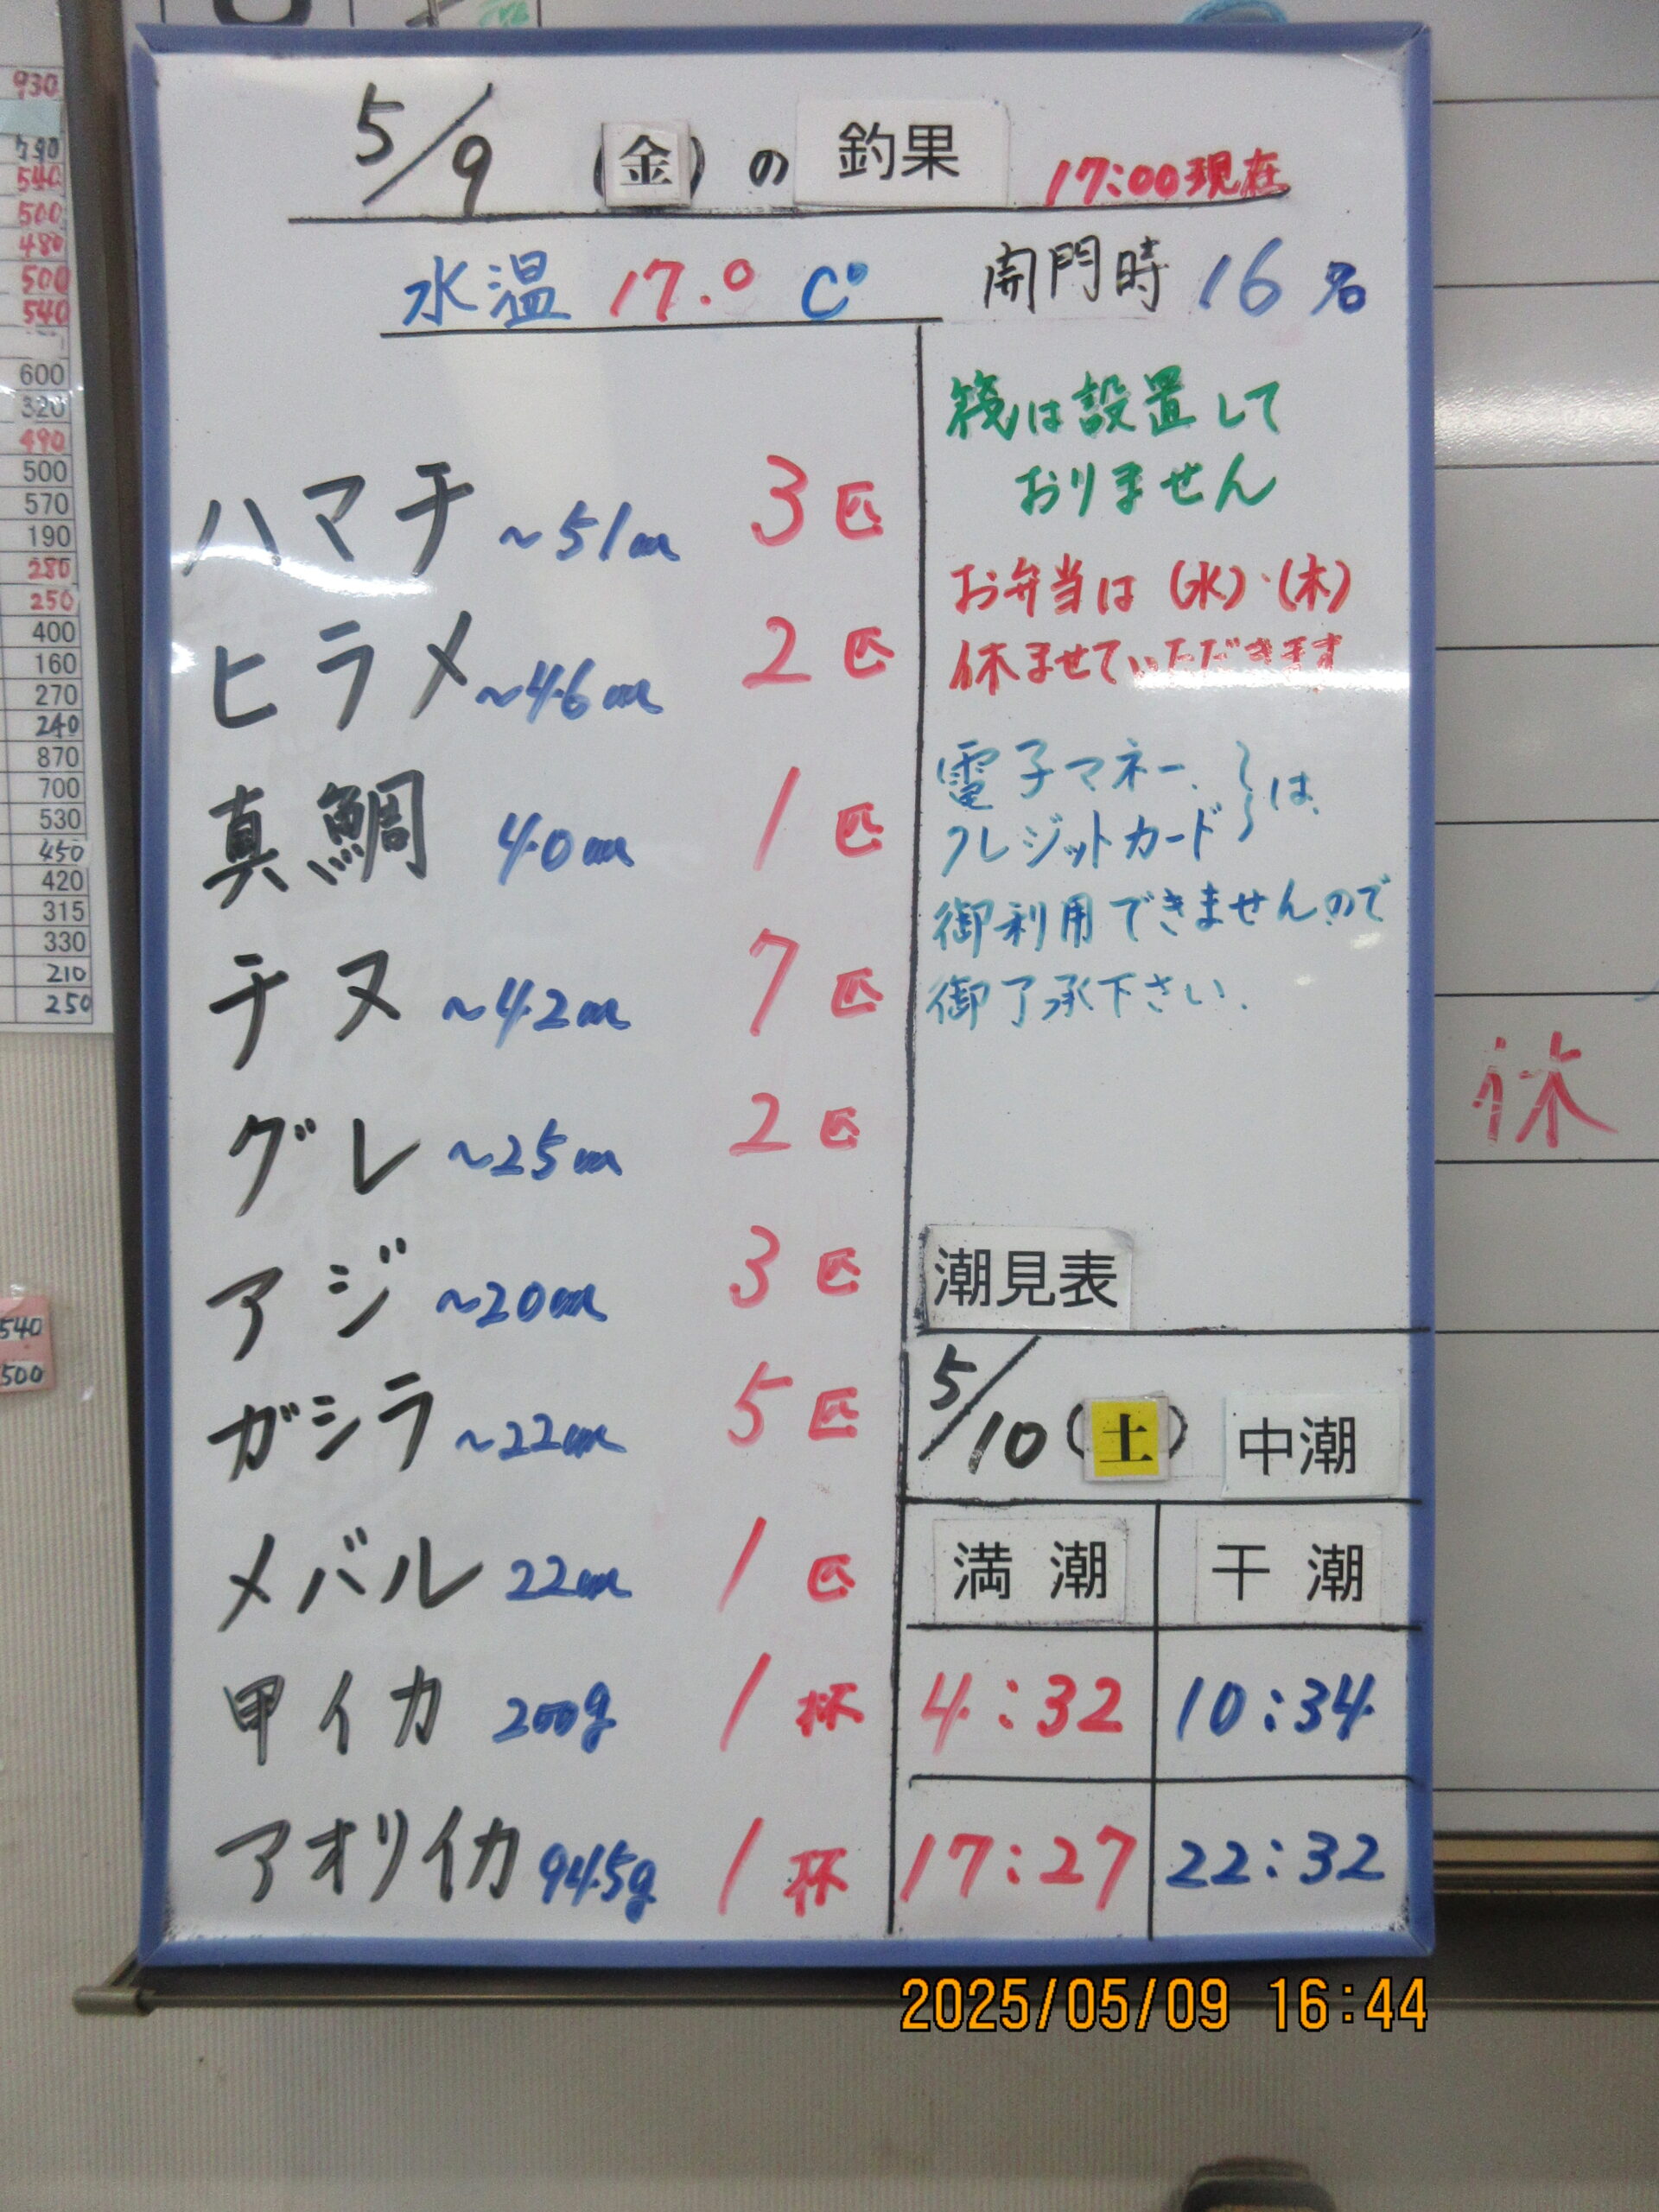 5/9 (金) の 釣果 17:00現在
水温 17.0 C° 開門時 16名
ハマチ ~51cm 3匹
ヒラメ ~46cm 2匹
真鯛 40cm 1匹
チヌ ~42cm 7匹
グレ ~25cm 2匹
アジ ~20cm 3匹
ガシラ ~22cm 5匹
メバル 22cm 1匹
甲イカ 200g 1杯
アオリイカ 945g 1杯
筏は設置して
おりません
お弁当は(水)・(木)
休ませていただきます
電子マネー、
クレジットカード は、
御利用できませんので
御了承下さい.
潮見表
5/10 (土) 中潮
満潮 干潮
4:32 10:34
17:27 22:32
休
930
540
500
480
500
540
600
320
490
500
570
190
280
250
400
160
270
240
870
700
530
450
420
315
330
210
250
540
500
2025/05/09 16:44